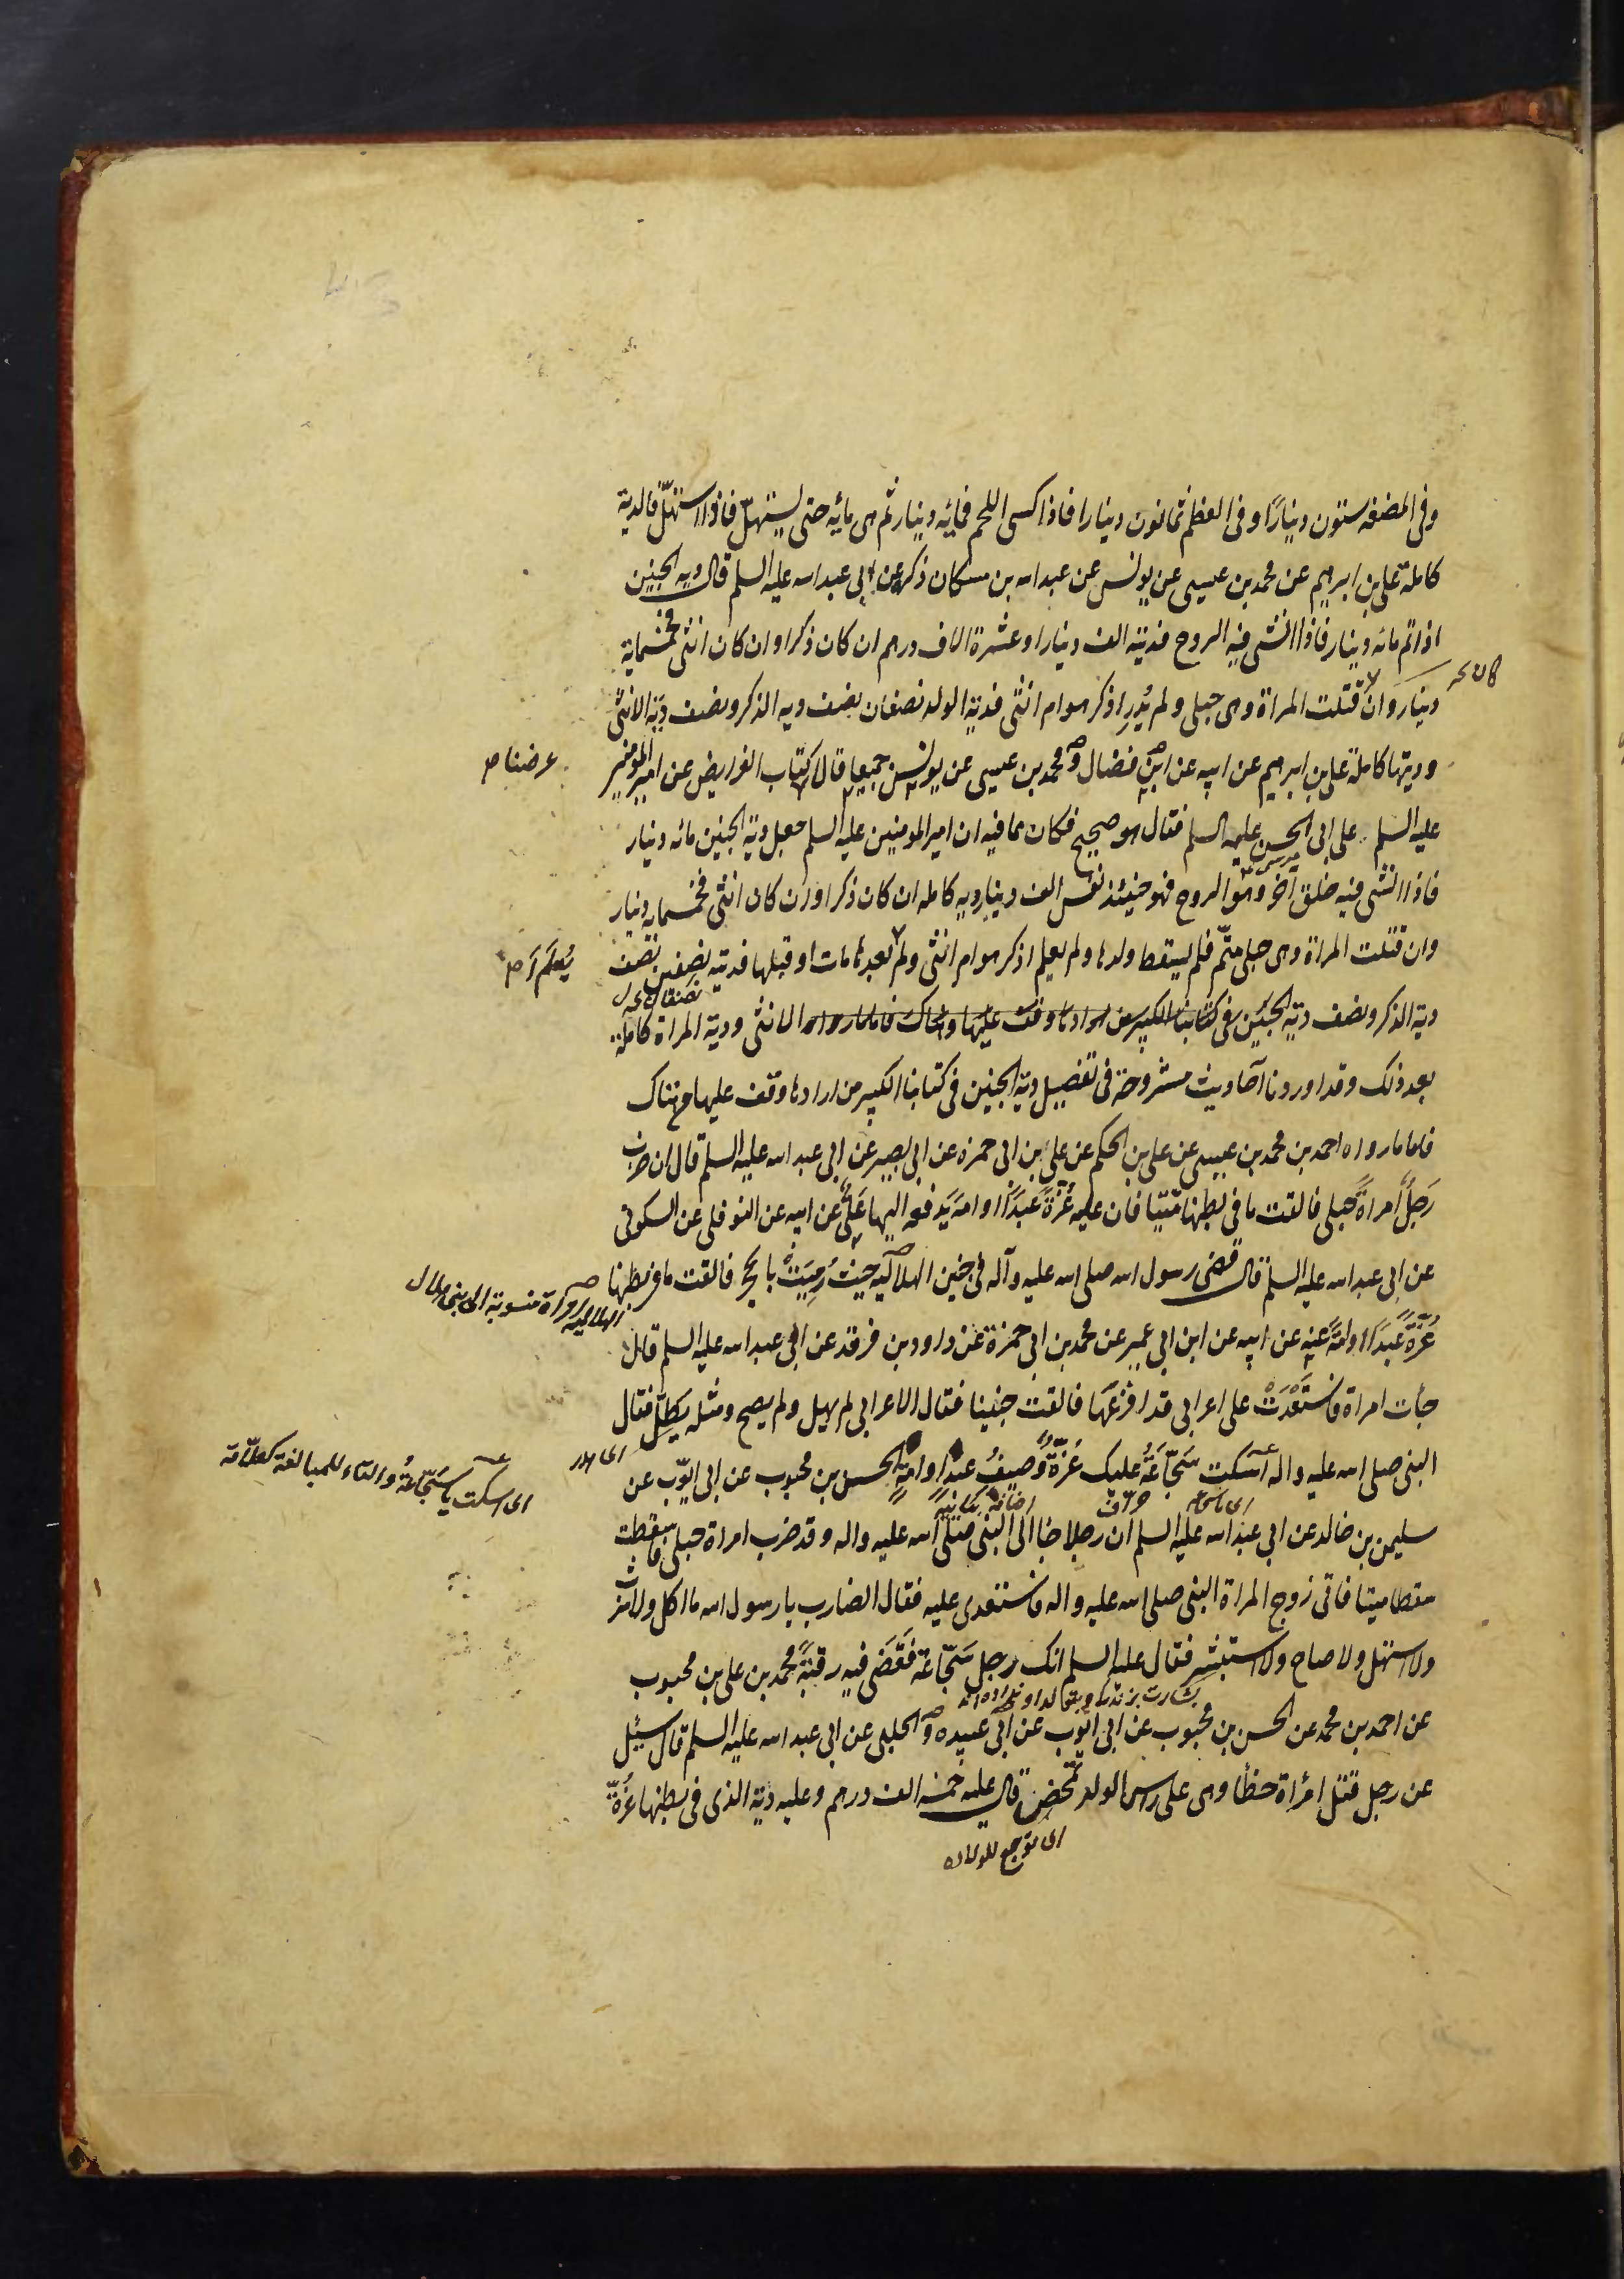 وفى المضغه ستون دينارًا وفى العظم ثمانون دينارا فاذا كسى اللحم فمائه دينار ثم هى مائه حتى يستهلّ فاذا استهلّ فالدية
كاملة على بن ابرهيم عن محمد بن عيسى عن يونس عن عبد الله بن مسكان ذكره عن ابى عبد الله عليه السلم قال دية الجنين
اذا تم مائه دينار فاذا انشئ فيه الروح فديته الف دينار او عشرة الاف درهم ان كان ذكرا وان كان انثى فخمسمایة
دينار وان قتلت المراة وهى حبلى ولم يُدرِ اذكر هو ام انثى فدية الولد نصفان نصف ديه الذكر ونصف ديّة الانثى
وديتها كاملة على بن ابرهيم عن ابيه عن ابن فضال ومحمد بن عيسى عن يونس جميعا قالا كتاب الفرايض عن امير المومنين
عرضنا
عليه السلم على ابى الحسن عليه السلم فقال هو صحيح فكان مما فيه ان امير المومنين عليه السلم جعل دية الجنين مائه دينار
فاذا انشئ فيه خلق اخر وهو الروح فهو حينئذ نفس الف دينار ديه كامله ان كان ذكرا وان كان انثى فخمسمايه دينار
وان قتلت المراة وهى حبلى متمّ فلم يسقط ولدها ولم يعلم اذكر هو ام انثى ولم بعدها مات او قبلها فديته نصفين نصف
يُعلَم
دية الذكر ونصف دية الانثى ودية المراة كاملة
بعد ذلك وقد اوردنا احاديث مشروحة فى تفصيل دية الجنين فى كتابنا الكبير من ارادها وقف عليها من هناك
فاما ما رواه احمد بن محمد بن عيسى عن على بن الحكم عن على بن ابى حمزه عن ابى بصير عن ابى عبد الله عليه السلم قال ان ضرب
رَجلٌ امراةً حبلى فالقت ما فى بطنها ميّتا فان عليه غُرّةً عَبدًا او امة يَدفعه اليها عَلىٌّ عن ابيه عن النوفلى عن السكونى
عن ابى عبد الله عليه السلم قال قضى رسول الله صلى الله عليه وآله فى جنين الهلاليه حيثُ رُمِيَت بالحجر فالقت ما فى بطنها
الهلاليه امراة منسوبة الى بنى هلال
غُرّةً عَبدًا او امَةً عنه عن ابيه عن ابن ابى عمير عن محمد بن ابى حمزة عن داود بن فرقد عن ابى عبد الله عليه السلم قال
جاءت امراة فاستَعْدَتْ على اعرابى قد افزعَها فالقت جنينا فقال الاعرابى لم يهل ولم يصح ومثله يطلّ فقال
النبى صلى الله عليه واله اسكت سَجّاعَةُ عليك غُرّةٌ وَصيفٌ عبد او امة الحسن بن محبوب عن ابى ايوّب عن
اى اسكت يا سَجّاعَةُ والتاء للمبالغة كعلّامة
سليمن بن خالد عن ابى عبد الله عليه السلم ان رجلا جاء الى النبى صلى الله عليه واله وقد ضرب امراة حبلى فاسقطت
سقطا ميتا فاتى زوج المراة النبى صلى الله عليه واله فاستعدى عليه فقال الضارب يا رسول الله ما اكل ولا شرب
ولا استهل ولا صاح ولا استبشر فقال عليه السلم انك رجل سَجّاعة فَقَضى فيه رقبَةً محمد بن على بن محبوب
عن احمد بن محمد عن الحسن بن محبوب عن ابى ايّوب عن ابى عبيده والحلبى عن ابى عبد الله عليه السلم قال سئِل
عن رجل قتل امرأة خطأ وهى على راس الولد تمخض قال عليه خمسه الف درهم وعليه دية الذى فى بطنها غُرّة
اى توجع للولاده